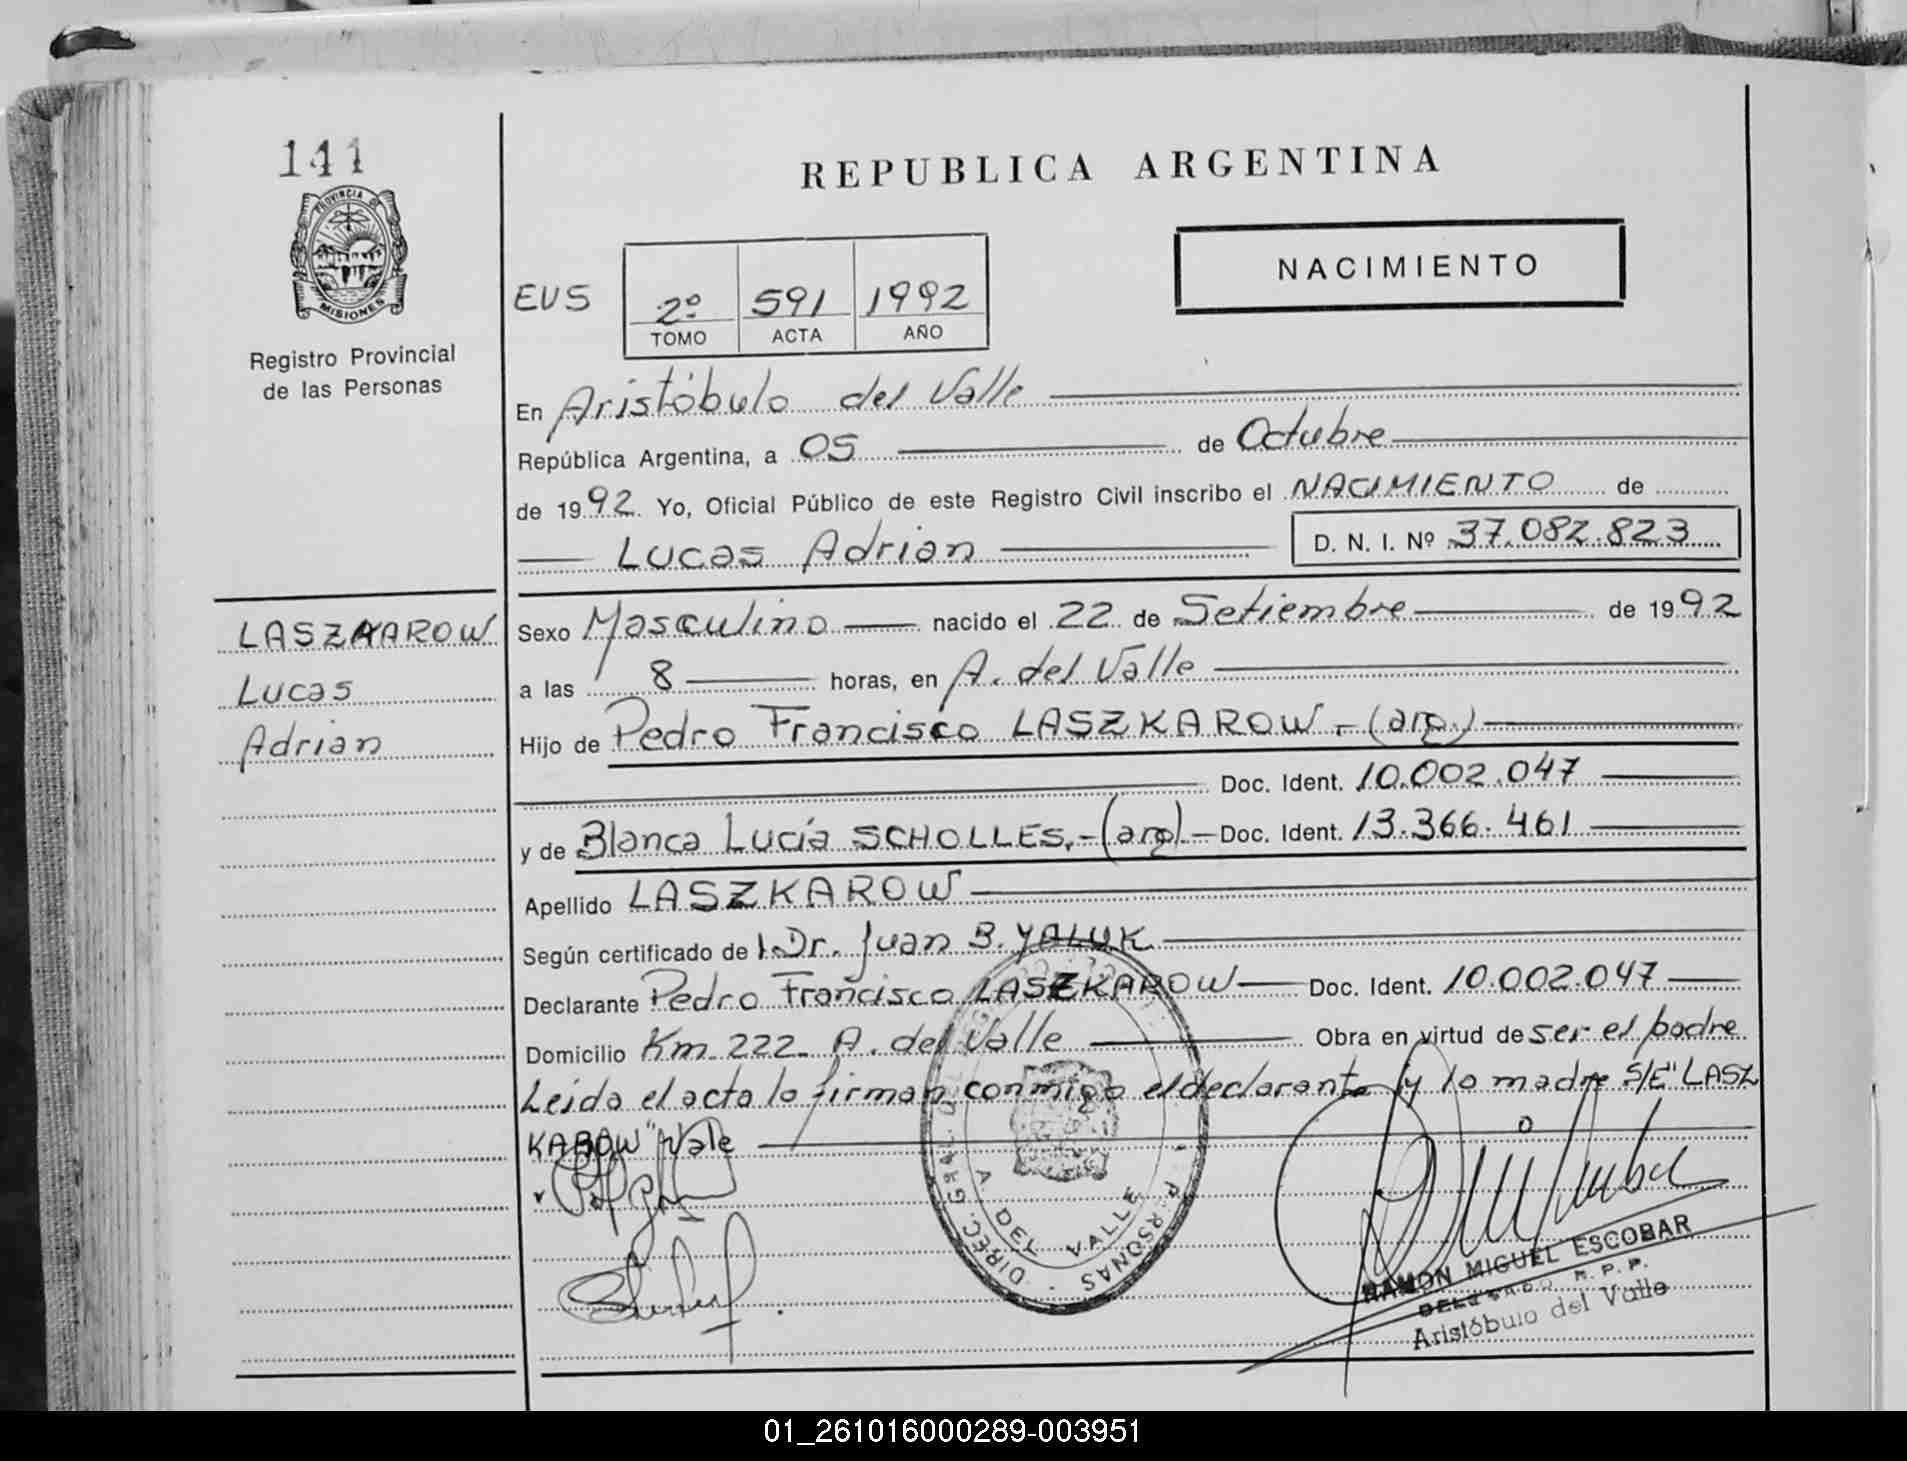 141
PROVINCIA DE
MISIONES
Registro Provincial
de las Personas
LASZKAROW
Lucas
Adrian
REPUBLICA ARGENTINA
NACIMIENTO
EUS 2º 591 1992
TOMO ACTA AÑO
En Aristóbulo del Valle
República Argentina, a 05 de Octubre
de 1992. Yo, Oficial Público de este Registro Civil inscribo el NACIMIENTO de
Lucas Adrian D. N. I. Nº 37.082.823
Sexo Masculino nacido el 22 de Setiembre de 1992
a las 8 horas, en A. del Valle
Hijo de Pedro Francisco LASZKAROW.-(arg.)
Doc. Ident. 10.002.047
y de Blanca Lucía SCHOLLES.-(arg).- Doc. Ident. 13.366.461
Apellido LASZKAROW
Según certificado de l Dr. Juan B. YALUK
Declarante Pedro Francisco LASZKAROW Doc. Ident. 10.002.047
Domicilio Km 222 A. del Valle Obra en virtud de ser el padre
Leida el acta la firman conmigo el declarante y la madre S/E" LASZ
KAROW" Vale
DIREC. GRAL. DEL PERSONAS
A. DEL VALLE
RAMON MIGUEL ESCOBAR
DELEGADO R. P. P.
Aristóbulo del Valle
01_261016000289-003951